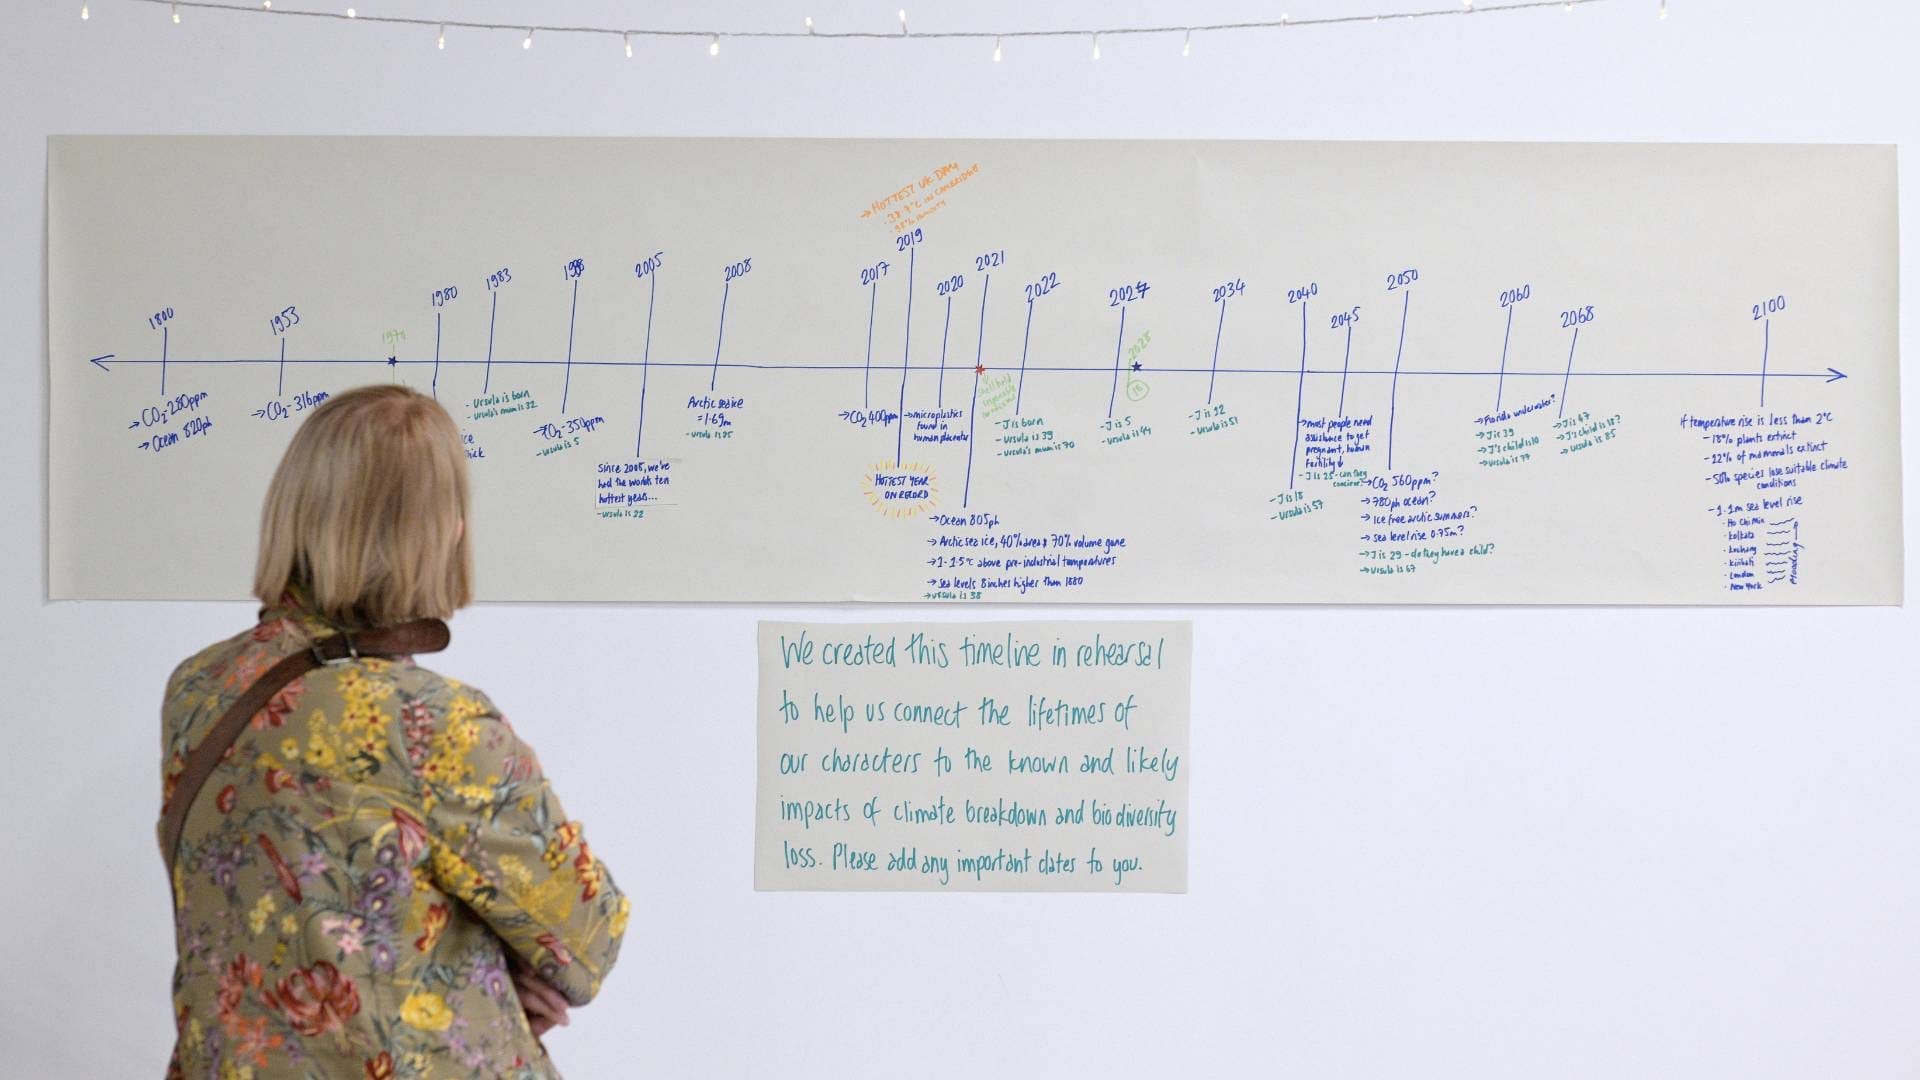 → HOTTEST UK DAY
- 38.7°C IN CAMBRIDGE
1800
→ CO2 - 280ppm
→ Ocean 820ph
1953
→ CO2 - 316ppm
1980
ice
thick
1983
- Ursula is born
- Ursula's mum is 32
→ CO2 - 350ppm
- Ursula is 5
2005
Since 2005, we've
had the worlds ten
hottest years...
- Ursula is 22
2008
Arctic sea ice
= 1.69m
- Ursula is 25
2017
→ CO2 400ppm
2019
HOTTEST YEAR
ON RECORD
2020
→ microplastics
found in
human placentas
2021
→ Ocean 805ph
→ Arctic sea ice, 40% area & 70% volume gone
→ 1-1.5°C above pre-industrial temperatures
→ Sea levels 8 inches higher than 1880
→ Ursula is 38
Shell held
responsible
2022
- J is born
- Ursula is 39
- Ursula's mum is 70
2027
- J is 5
- Ursula is 44
2028
2034
- J is 12
- Ursula is 51
2040
- J is 18
- Ursula is 57
2045
→ most people need
assistance to get
pregnant, human
fertility ↓
- J is 23 - can they
conceive?
2050
→ CO2 560ppm?
→ 780ph ocean?
→ Ice free arctic summers?
→ Sea level rise 0.75m?
→ J is 29 - do they have a child?
→ Ursula is 67
2060
→ Florida underwater?
→ J is 39
→ J's child is 10
→ Ursula is 77
2068
→ J is 47
→ J's child is 18?
→ Ursula is 85
2100
If temperature rise is less than 2°C
- 18% plants extinct
- 22% of mammals extinct
- 50% species lose suitable climate
conditions
- 1.1m sea level rise
· Ho Chi Min
· Kolkata
· Kiribati
· London
· New York
flooding
We created this timeline in rehearsal
to help us connect the lifetimes of
our characters to the known and likely
impacts of climate breakdown and biodiversity
loss. Please add any important dates to you.